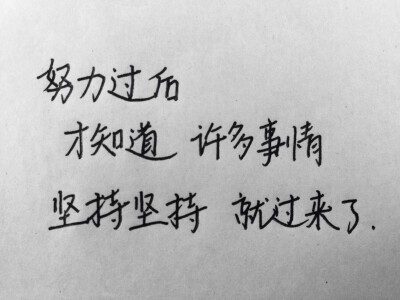 努力过后
才知道 许多事情
坚持坚持 就过来了.